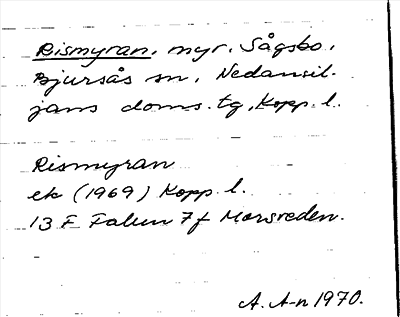 Rismyran, myr, Sågsbo,
Bjursås sn, Nedansil-
jans doms. tg, Kopp. l.
Rismyran
ek (1969) Kopp. l.
13 F Falun 7f Morsveden.
A. A-n 1970.